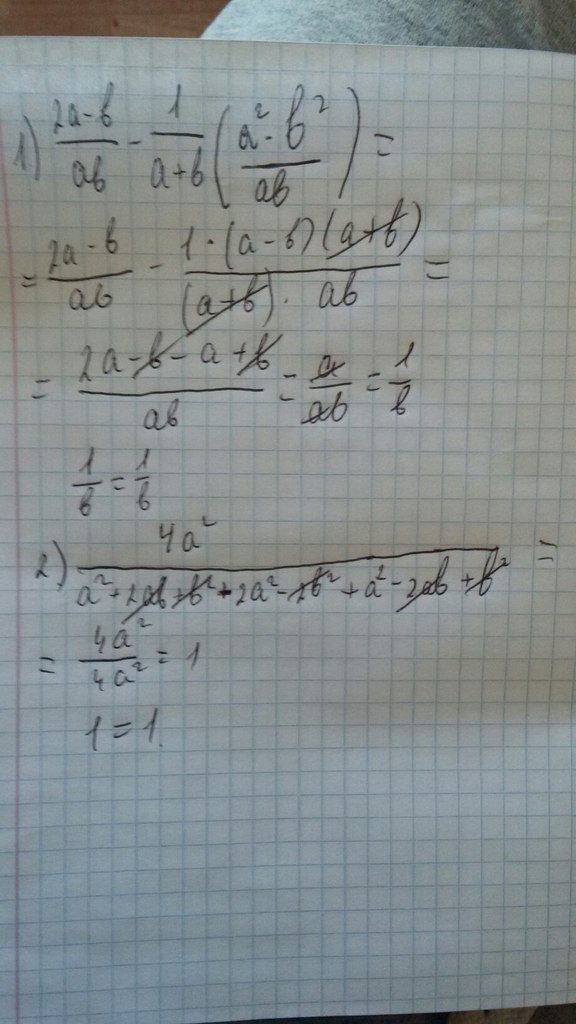 1) \frac{2a-b}{ab} - \frac{1}{a+b} \left( \frac{a^2-b^2}{ab} \right) =
= \frac{2a-b}{ab} - \frac{1 \cdot (a-b)(a+b)}{(a+b) \cdot ab} =
= \frac{2a-b-a+b}{ab} = \frac{a}{ab} = \frac{1}{b}
\frac{1}{b} = \frac{1}{b}
2) \frac{4a^2}{a^2+2ab+b^2+2a^2-2b^2+a^2-2ab+b^2} =
= \frac{4a^2}{4a^2} = 1
1 = 1.